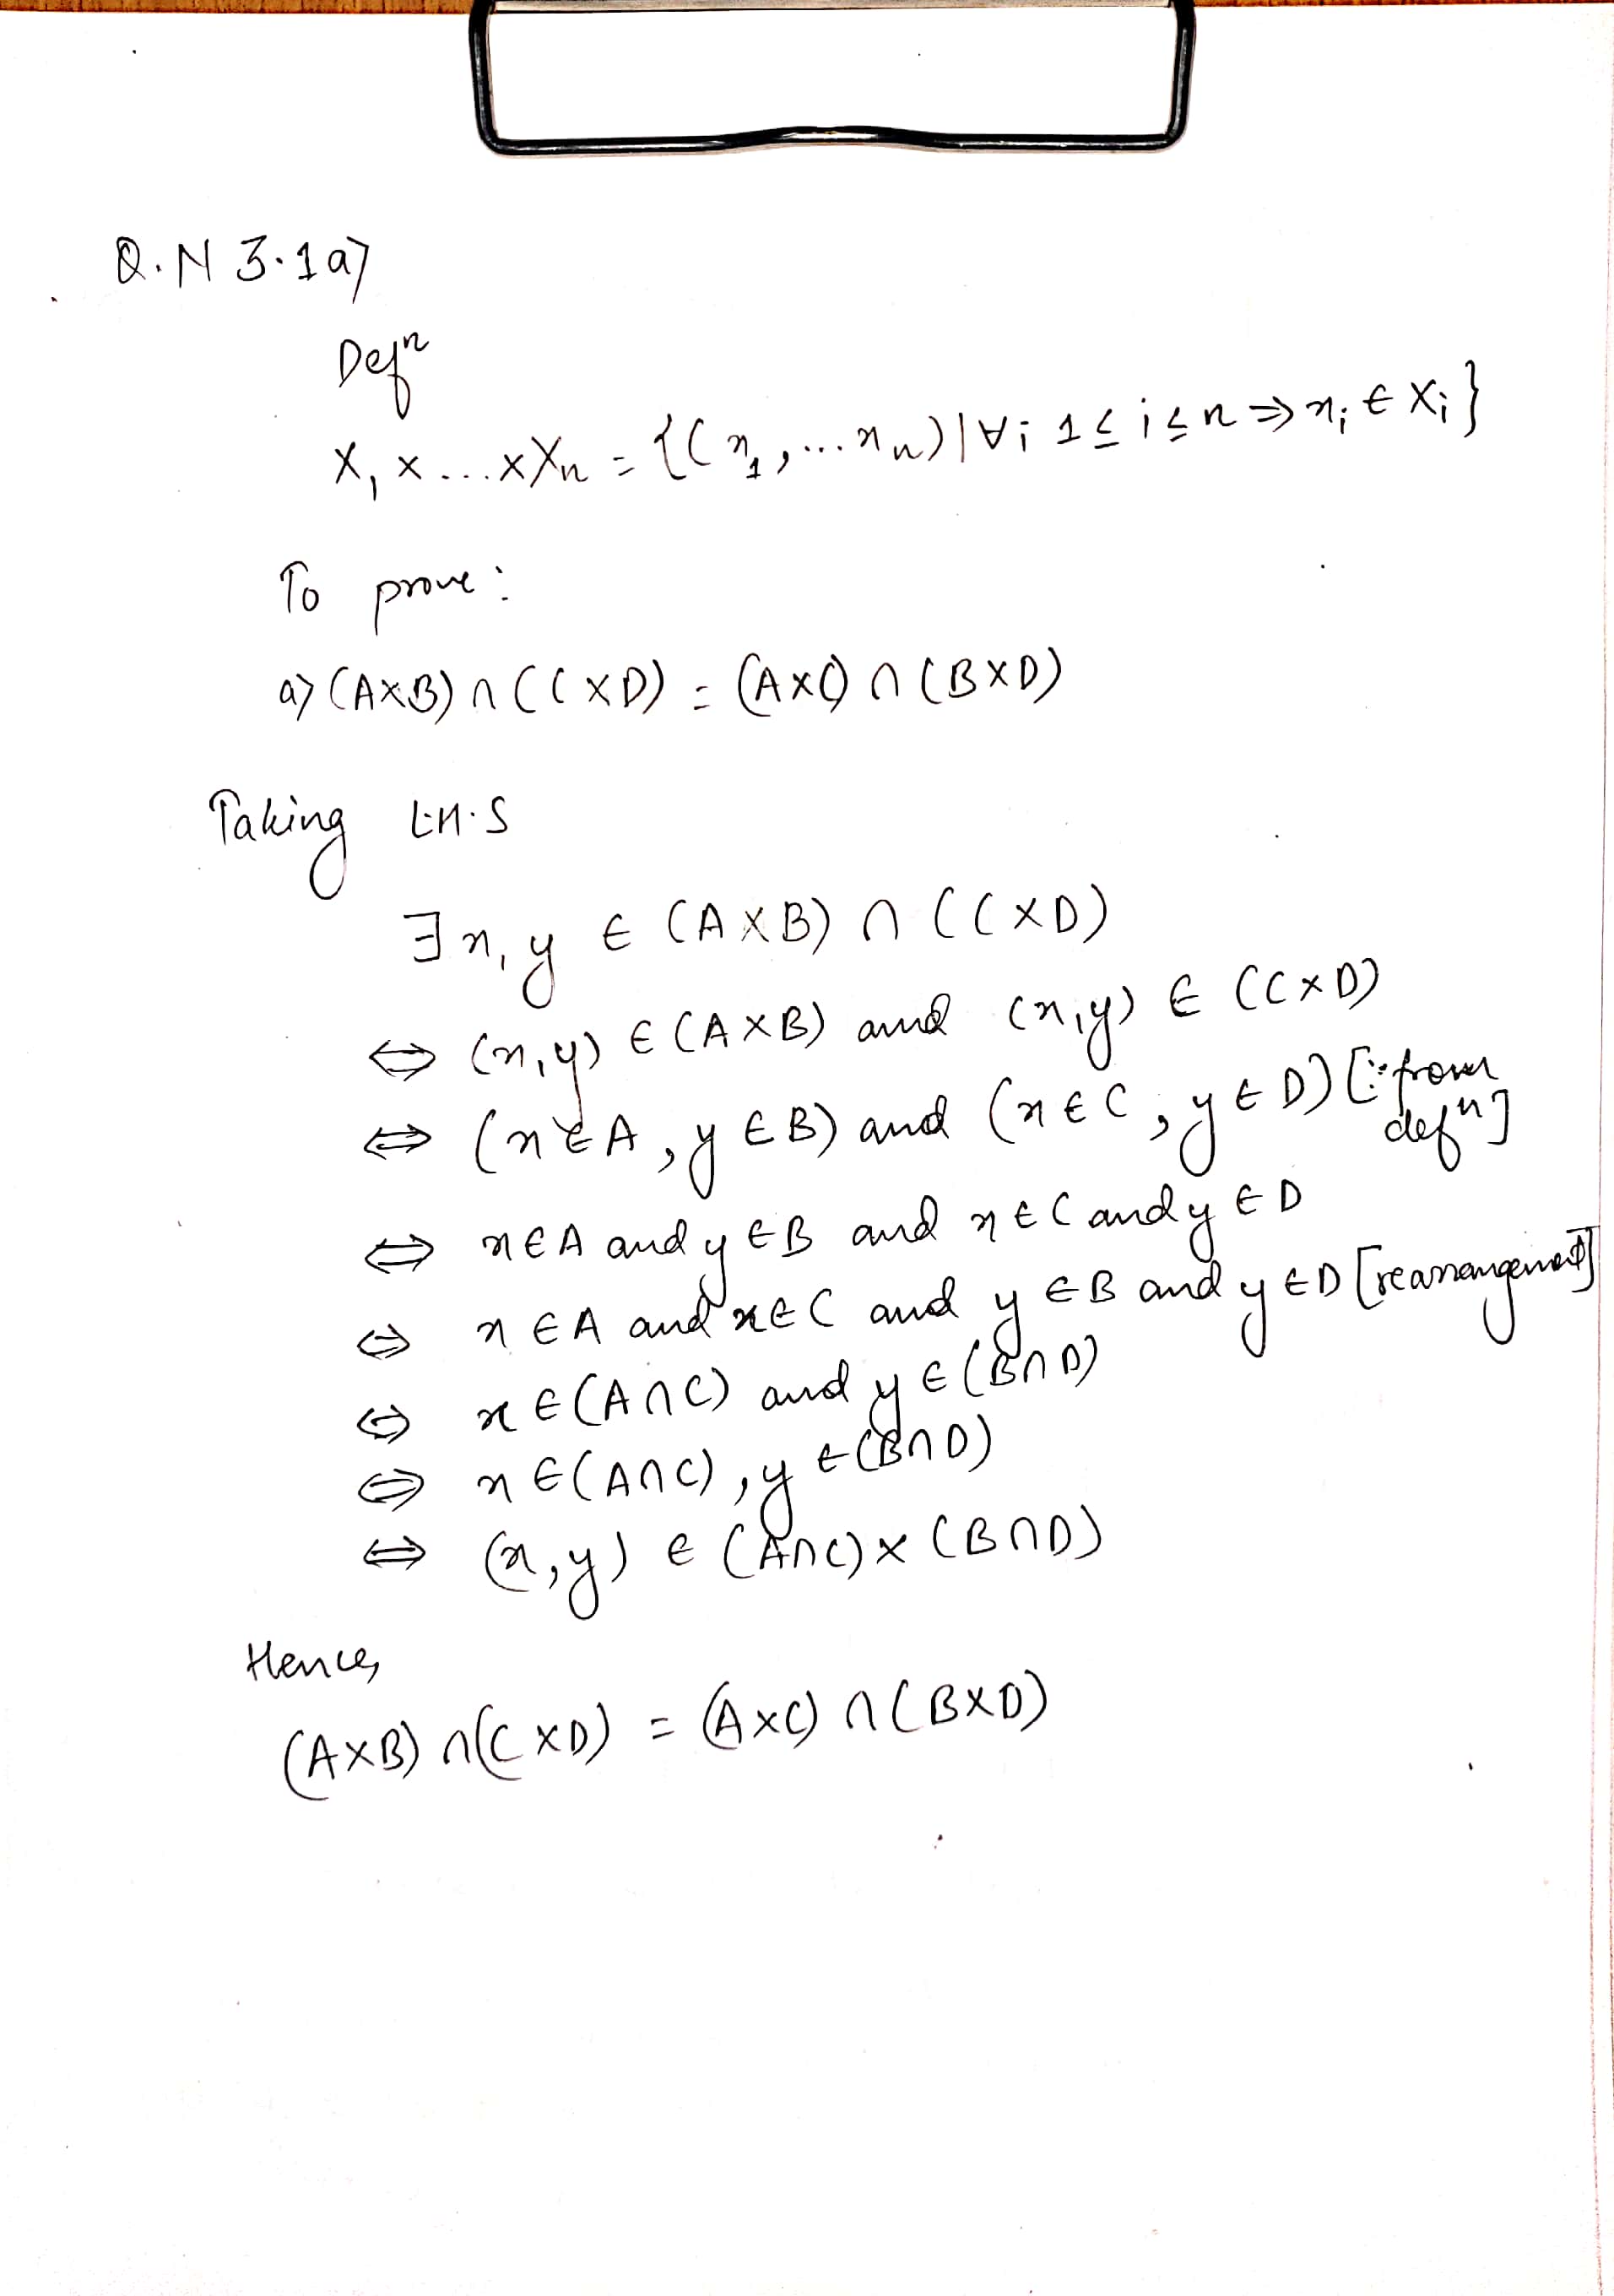 Q.N 3.1a)
Defⁿ
X₁ x ... x Xn = {(x₁, ... xn) | ∀i 1 ≤ i ≤ n ⇒ xi ∈ Xi}
To prove:
a) (A×B) ∩ (C×D) = (A×C) ∩ (B×D)
Taking L.H.S
∃ x, y ∈ (A×B) ∩ (C×D)
⇔ (x,y) ∈ (A×B) and (x,y) ∈ (C×D)
⇔ (x∈A, y∈B) and (x∈C, y∈D) [∵ from defⁿ]
⇔ x∈A and y∈B and x∈C and y∈D
⇔ x∈A and x∈C and y∈B and y∈D [rearrangement]
⇔ x∈(A∩C) and y∈(B∩D)
⇔ x∈(A∩C), y∈(B∩D)
⇔ (x,y) ∈ (A∩C)×(B∩D)
Hence,
(A×B) ∩ (C×D) = (A×C) ∩ (B×D)